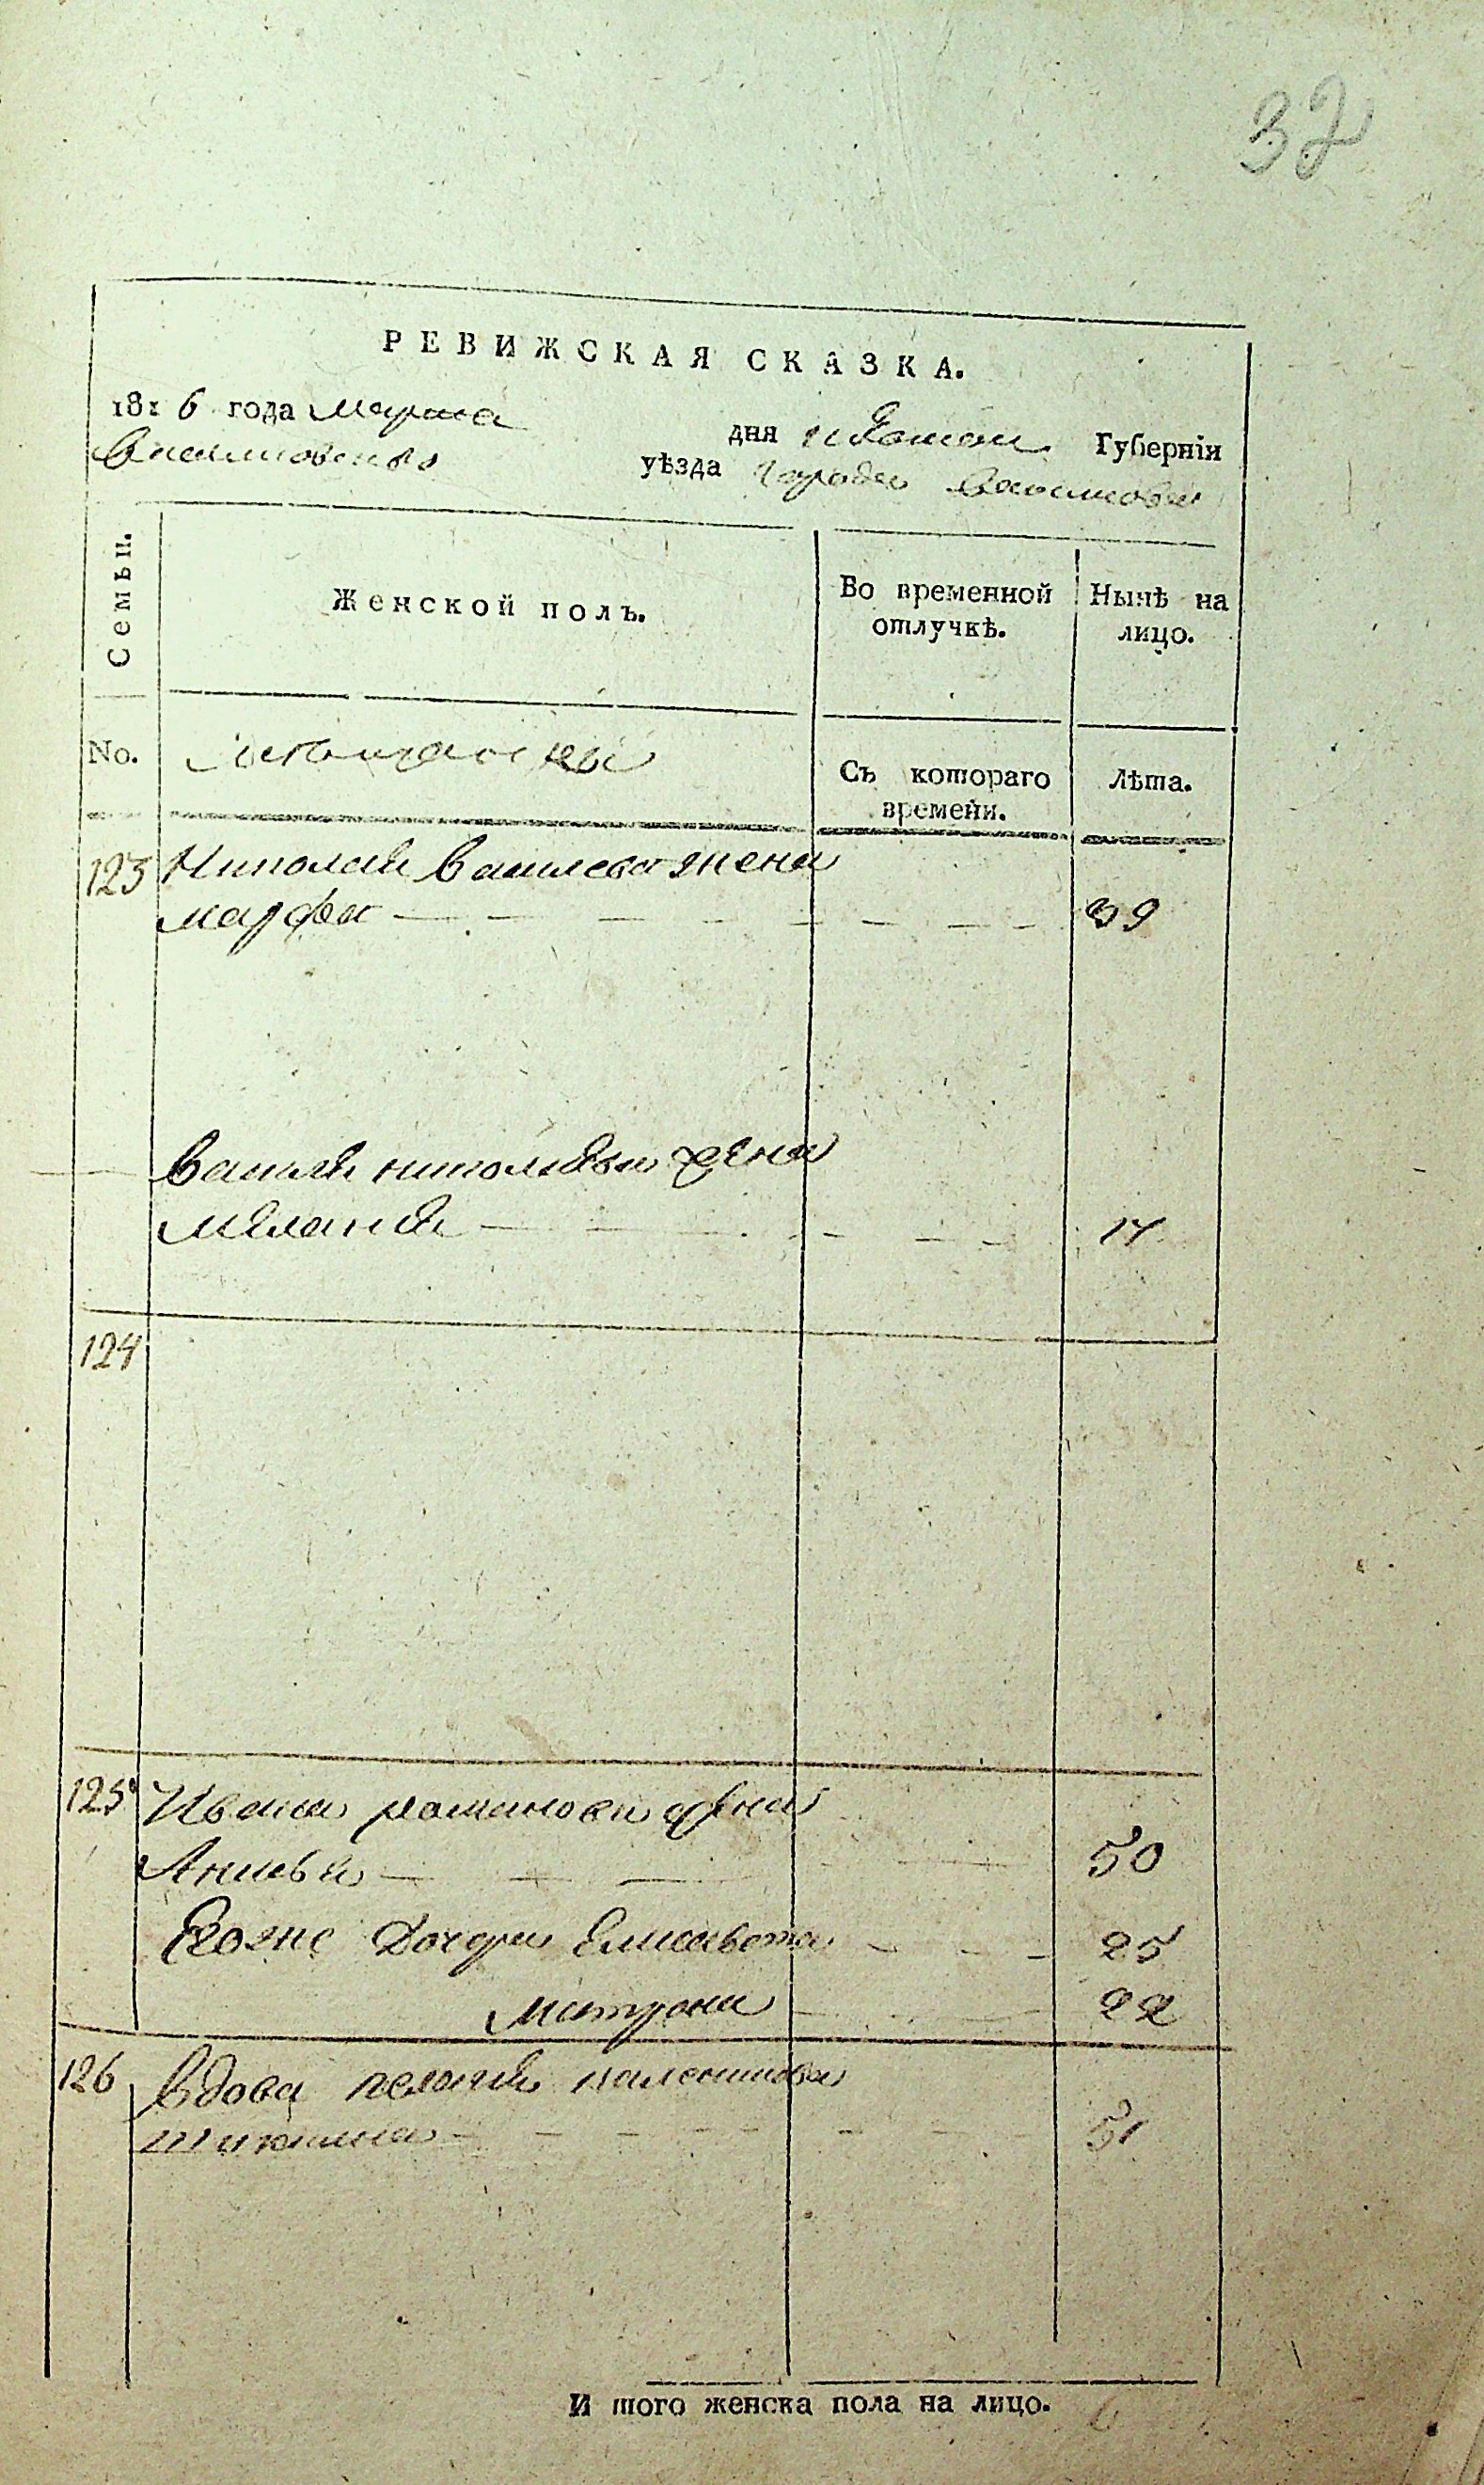 32
РЕВИЖСКАЯ СКАЗКА.
1816 года марта дня Губерніи
уѣзда города
Семьи.
Женской полъ.
Во временной отлучкѣ.
Нынѣ на лицо.
No.
Съ котораго времени.
Лѣта.
123 Николая Васильева жена
марфа 39
васили николаева жена
меланья 14
124
125 Ивана романова жена
Анисья 50
Егоже дочери Елисавета 25
матрона 22
126 вдова пелагея
51
И того женска пола на лицо. 6